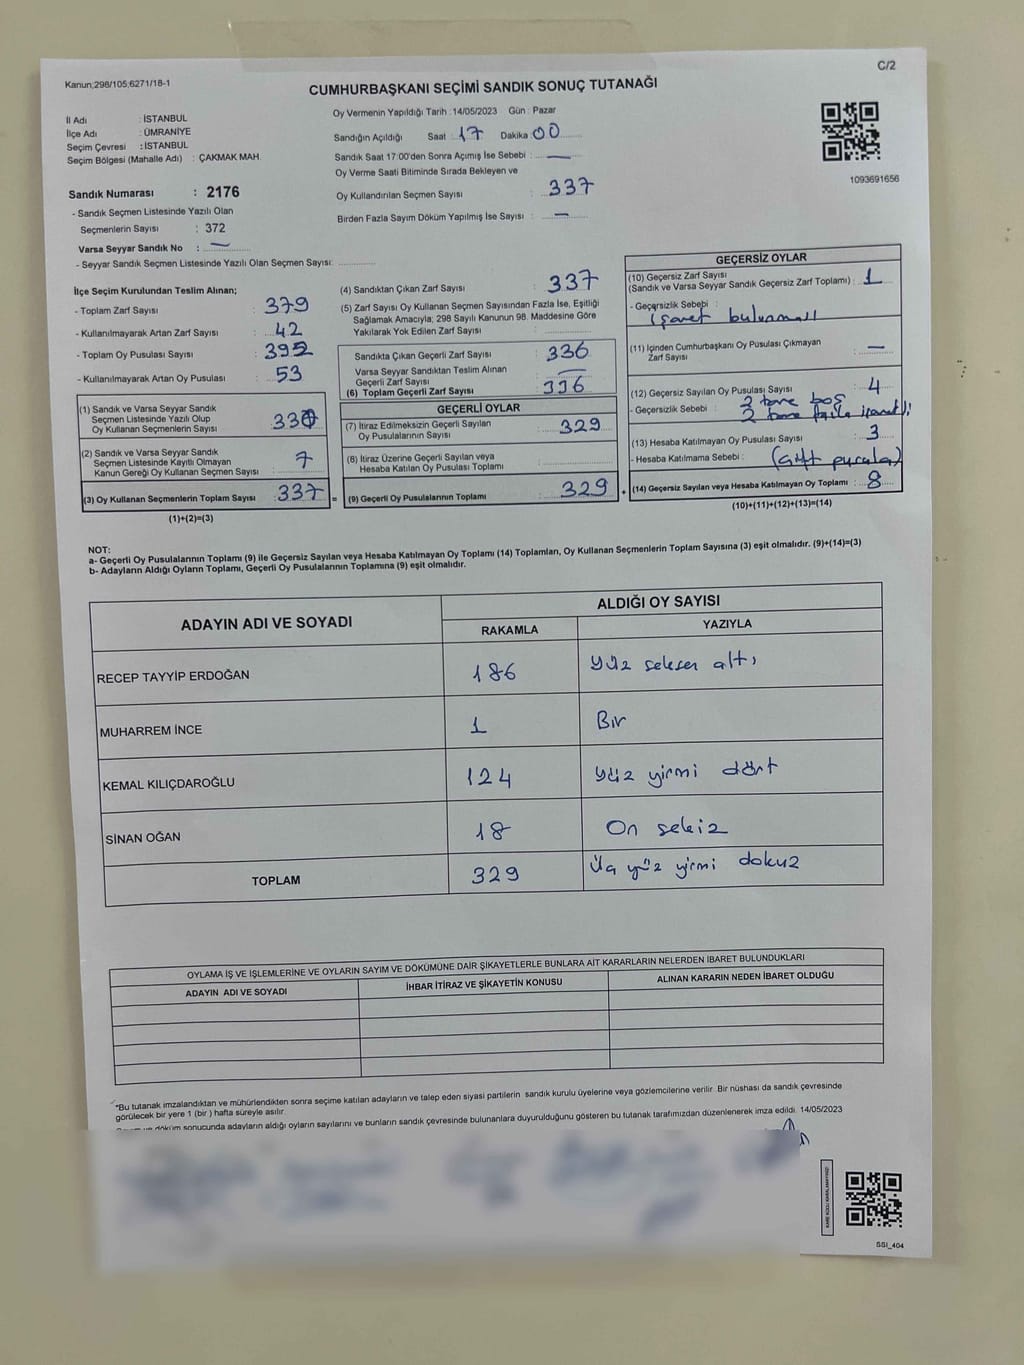 C/2
Kanun;298/105;6271/18-1
CUMHURBAŞKANI SEÇİMİ SANDIK SONUÇ TUTANAĞI
İl Adı : İSTANBUL
İlçe Adı : ÜMRANİYE
Seçim Çevresi : İSTANBUL
Seçim Bölgesi (Mahalle Adı) : ÇAKMAK MAH.
Sandık Numarası : 2176
- Sandık Seçmen Listesinde Yazılı Olan
Seçmenlerin Sayısı : 372
Varsa Seyyar Sandık No : —
- Seyyar Sandık Seçmen Listesinde Yazılı Olan Seçmen Sayısı:
Oy Vermenin Yapıldığı Tarih : 14/05/2023 Gün : Pazar
Sandığın Açıldığı Saat : 17 Dakika : 00
Sandık Saat 17:00'den Sonra Açımış İse Sebebi : —
Oy Verme Saati Bitiminde Sırada Bekleyen ve
Oy Kullandırılan Seçmen Sayısı : 337
Birden Fazla Sayım Döküm Yapılmış İse Sayısı : —
1093691656
İlçe Seçim Kurulundan Teslim Alınan;
- Toplam Zarf Sayısı : 379
- Kullanılmayarak Artan Zarf Sayısı : 42
- Toplam Oy Pusulası Sayısı : 392
- Kullanılmayarak Artan Oy Pusulası : 53
(1) Sandık ve Varsa Seyyar Sandık
Seçmen Listesinde Yazılı Olup
Oy Kullanan Seçmenlerin Sayısı : 330
(2) Sandık ve Varsa Seyyar Sandık
Seçmen Listesinde Kayıtlı Olmayan
Kanun Gereği Oy Kullanan Seçmen Sayısı : 7
(3) Oy Kullanan Seçmenlerin Toplam Sayısı : 337 =
(1)+(2)=(3)
(4) Sandıktan Çıkan Zarf Sayısı : 337
(5) Zarf Sayısı Oy Kullanan Seçmen Sayısından Fazla İse, Eşitliği
Sağlamak Amacıyla; 298 Sayılı Kanunun 98. Maddesine Göre
Yakılarak Yok Edilen Zarf Sayısı :
Sandıkta Çıkan Geçerli Zarf Sayısı : 336
Varsa Seyyar Sandıktan Teslim Alınan
Geçerli Zarf Sayısı : —
(6) Toplam Geçerli Zarf Sayısı : 336
GEÇERLİ OYLAR
(7) İtiraz Edilmeksizin Geçerli Sayılan
Oy Pusulalarının Sayısı : 329
(8) İtiraz Üzerine Geçerli Sayılan veya
Hesaba Katılan Oy Pusulası Toplamı :
(9) Geçerli Oy Pusulalarının Toplamı : 329 +
GEÇERSİZ OYLAR
(10) Geçersiz Zarf Sayısı
(Sandık ve Varsa Seyyar Sandık Geçersiz Zarf Toplamı) : 1
- Geçersizlik Sebebi :
işaret bulunması
(11) İçinden Cumhurbaşkanı Oy Pusulası Çıkmayan
Zarf Sayısı : —
(12) Geçersiz Sayılan Oy Pusulası Sayısı : 4
- Geçersizlik Sebebi : 2 tane boş
2 tane fazla işaretli
(13) Hesaba Katılmayan Oy Pusulası Sayısı : 3
- Hesaba Katılmama Sebebi : (Çift pusula)
(14) Geçersiz Sayılan veya Hesaba Katılmayan Oy Toplamı : 8
(10)+(11)+(12)+(13)=(14)
NOT:
a- Geçerli Oy Pusulalarının Toplamı (9) ile Geçersiz Sayılan veya Hesaba Katılmayan Oy Toplamı (14) Toplamları, Oy Kullanan Seçmenlerin Toplam Sayısına (3) eşit olmalıdır. (9)+(14)=(3)
b- Adayların Aldığı Oyların Toplamı, Geçerli Oy Pusulalarının Toplamına (9) eşit olmalıdır.
ADAYIN ADI VE SOYADI ALDIĞI OY SAYISI
RAKAMLA YAZIYLA
RECEP TAYYİP ERDOĞAN 186 Yüz seksen altı
MUHARREM İNCE 1 Bir
KEMAL KILIÇDAROĞLU 124 Yüz yirmi dört
SİNAN OĞAN 18 On sekiz
TOPLAM 329 Üç yüz yirmi dokuz
OYLAMA İŞ VE İŞLEMLERİNE VE OYLARIN SAYIM VE DÖKÜMÜNE DAİR ŞİKAYETLERLE BUNLARA AİT KARARLARIN NELERDEN İBARET BULUNDUKLARI
ADAYIN ADI VE SOYADI İHBAR İTİRAZ VE ŞİKAYETİN KONUSU ALINAN KARARIN NEDEN İBARET OLDUĞU
*Bu tutanak imzalandıktan ve mühürlendikten sonra seçime katılan adayların ve talep eden siyasi partilerin sandık kurulu üyelerine veya gözlemcilerine verilir. Bir nüshası da sandık çevresinde
görülecek bir yere 1 (bir ) hafta süreyle asılır.
ve döküm sonucunda adayların aldığı oyların sayılarını ve bunların sandık çevresinde bulunanlara duyurulduğunu gösteren bu tutanak tarafımızdan düzenlenerek imza edildi. 14/05/2023
SSI_404